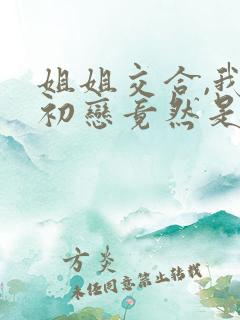 姐姐交合,我
初戀竟然是
方炎
未經同意禁止轉載